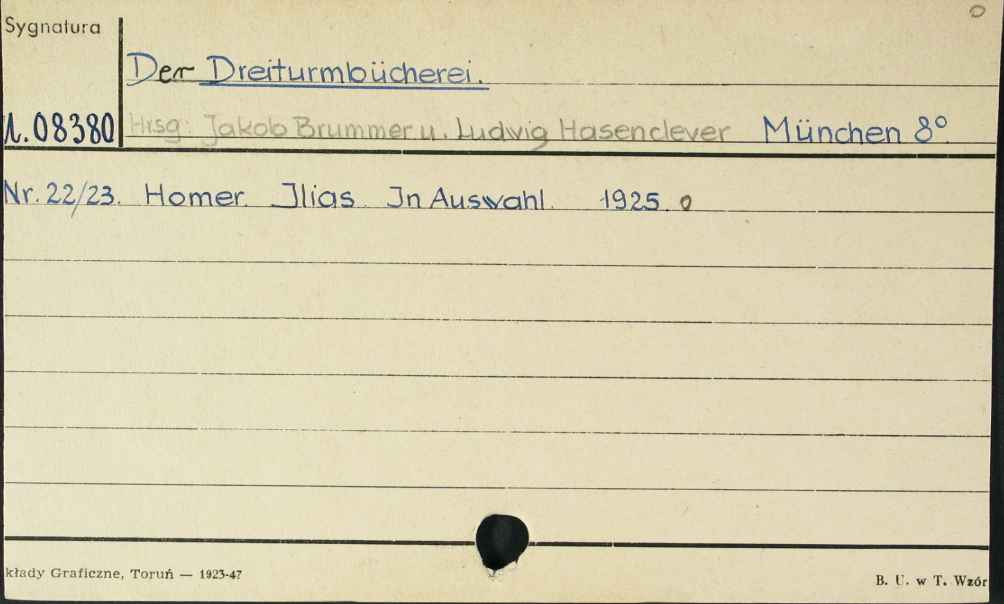 Sygnatura
Der Dreiturmbücherei.
1.08380 Hrsg: Jakob Brummer u. Ludwig Hasenclever München 8°
Nr. 22/23. Homer. Jlias. Jn Auswahl. 1925.
kłady Graficzne, Toruń — 1923-47
B. U. w T. Wzór